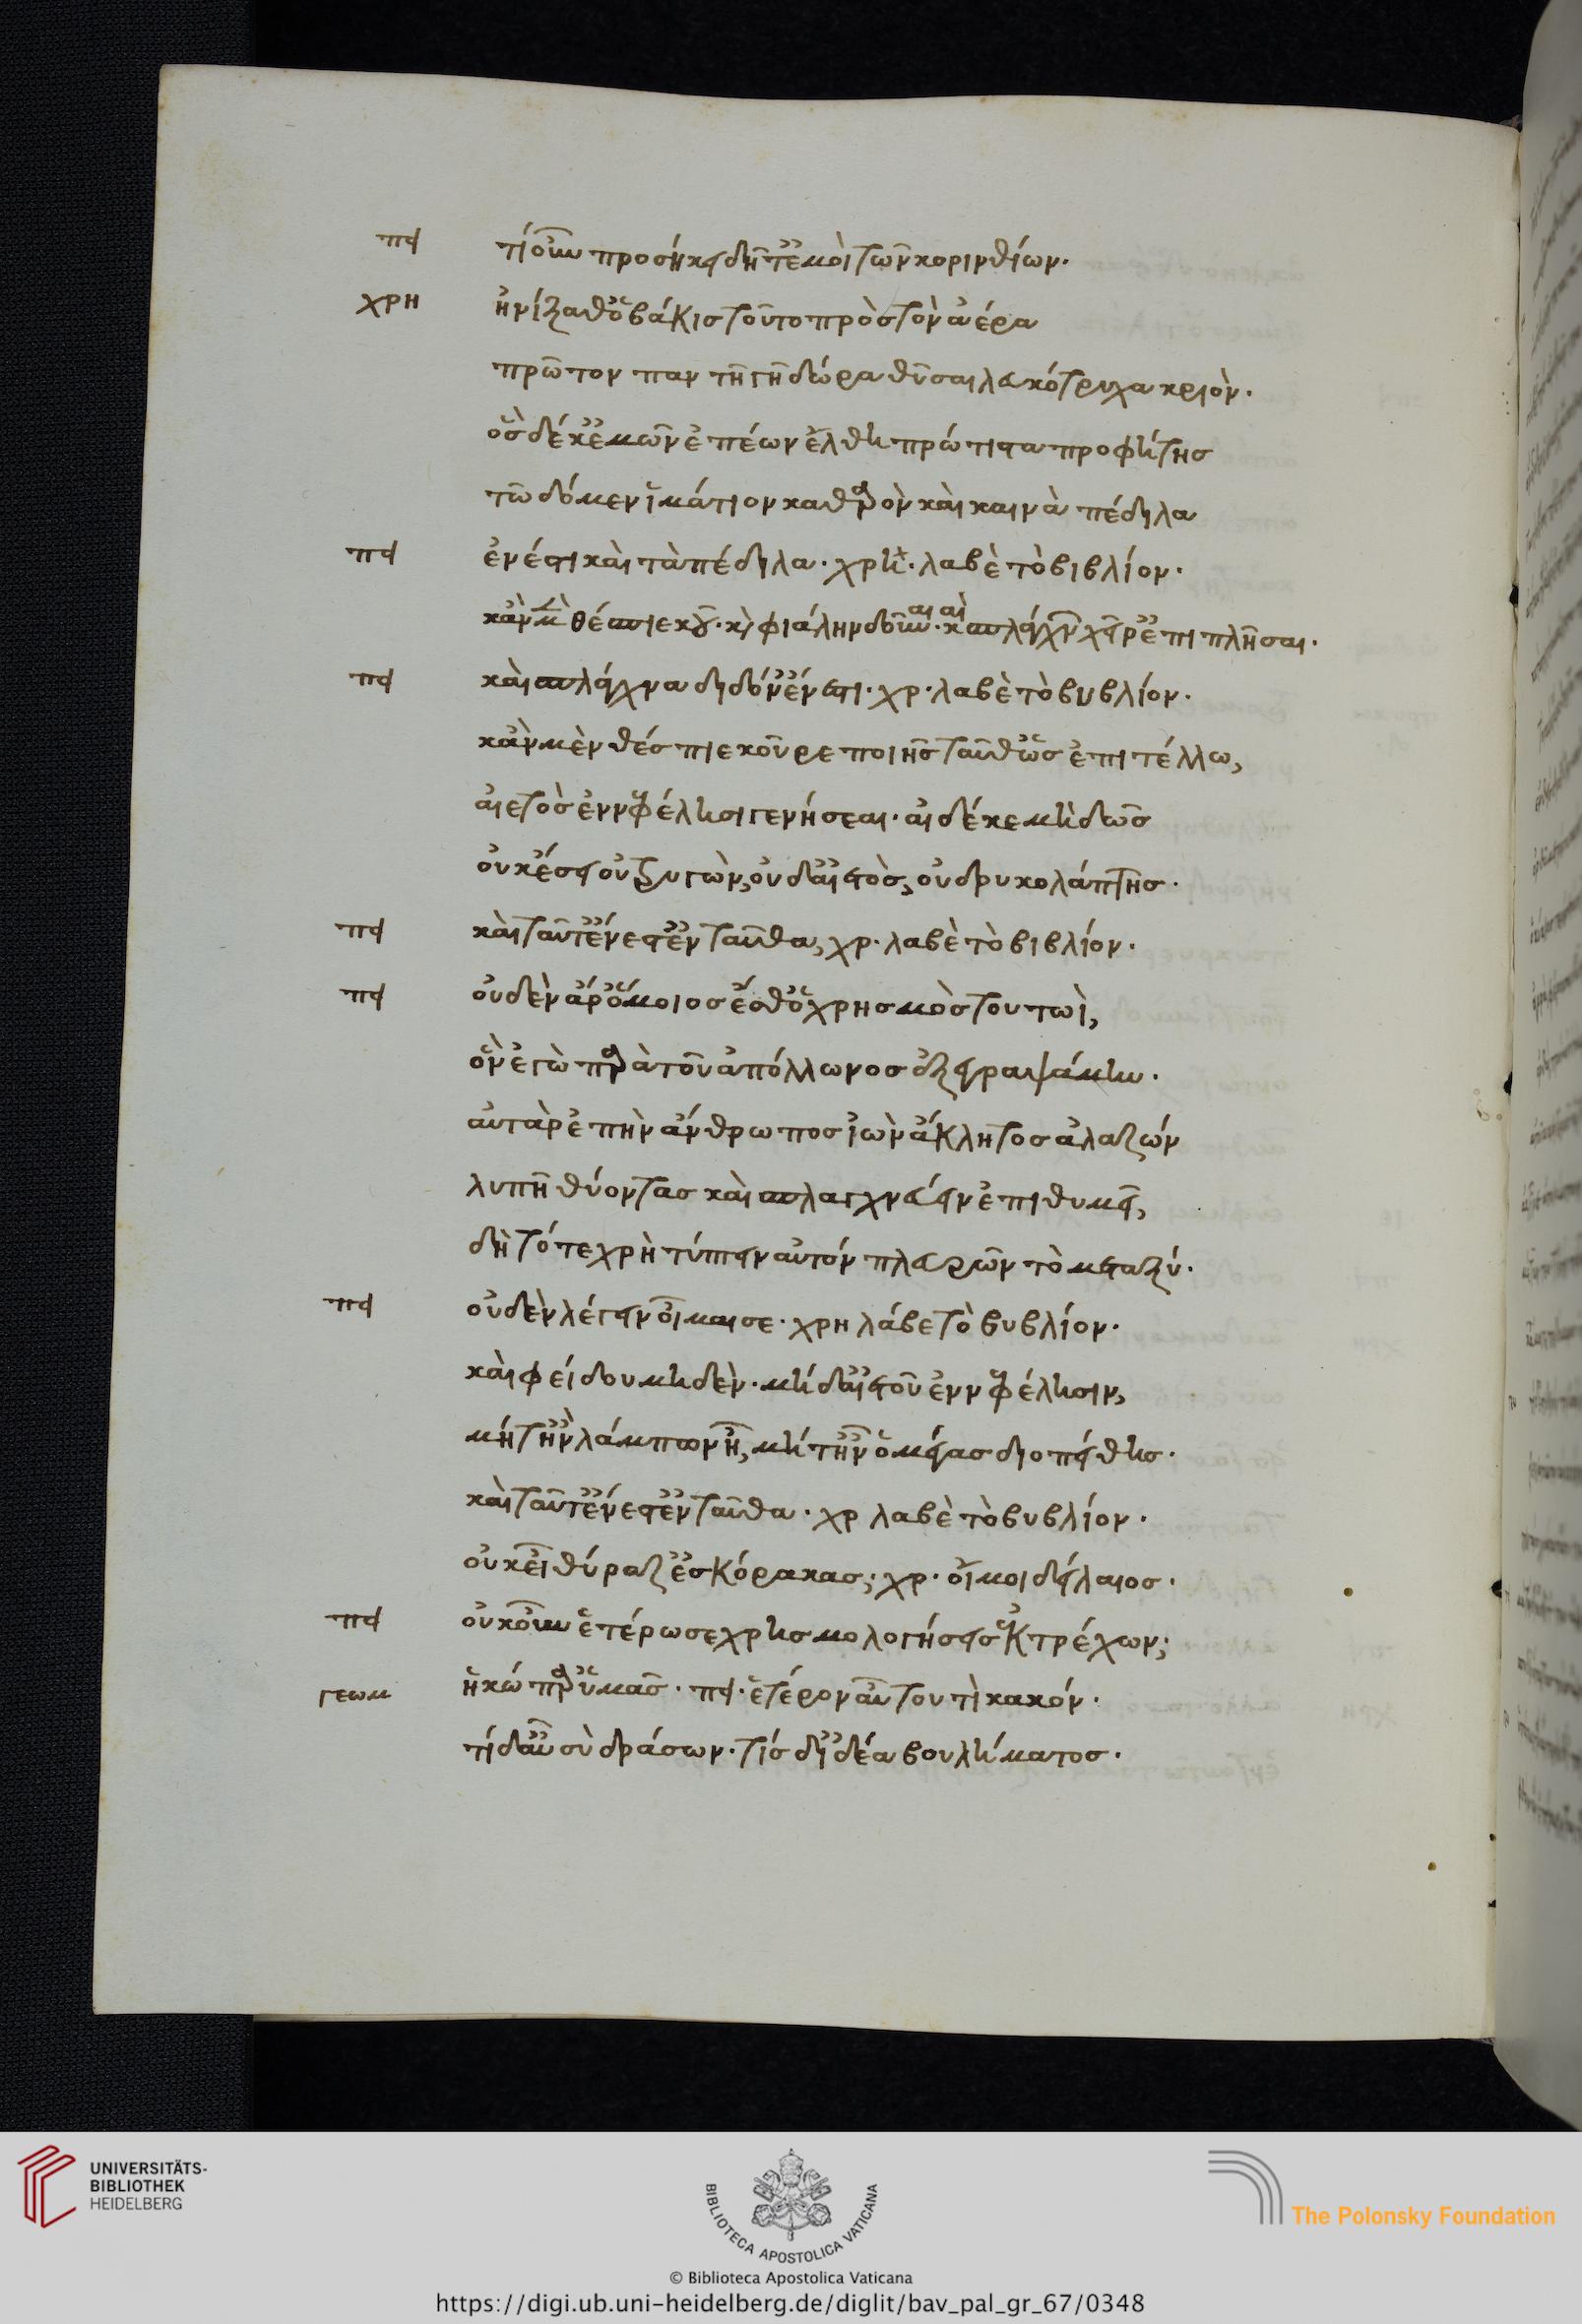 πει τί οὖν προσήκει δῆτ' ἐμοὶ τῶν κορινθίων.
χρη ἠνίξαθ' ὁ βάκις τοῦτο πρὸς τὸν ἀέρα
πρῶτον παν τῆ γῆ δώρα θῦσαι λευκότριχα κριὸν.
ὃς δέ κ' ἐμῶν ἐπέων ἔλθη πρώτιστα προφήτης
τῶ δόμεν ἱμάτιον καθαρὸν καὶ καινὰ πέδιλα
πει ἔνεστι καὶ τὰ πέδιλα. χρη. λαβὲ τὸ βιβλίον.
κἂν μὲ θέσπιε κοῦ. καὶ φιάλην δοῦναι. καὶ σπλάγχν χεῖρ' ἐπιπλῆσαι.
πει καὶ σπλάγχνα διδόν' ἔνεστι. χρ. λαβὲ τὸ βυβλίον.
κἂν μὲν θέσπιε κοῦρε ποιῆς ταῦθ' ὡς ἐπιτέλλω,
αἰετὸς ἐν νεφέλησι γενήσεαι. αἰ δέ κε μὴ δῶς
οὐκ ἔσει οὐ τρυγὼν, οὐδ' αἰετὸς, οὐ δρυκολάπτης.
πει καὶ ταῦτ' ἔνεστ' ἐνταῦθα, χρ. λαβὲ τὸ βιβλίον.
πει οὐδὲν ἄρ' ὅμοιος ἔσθ' ὁ χρησμὸς τουτωὶ,
ὃν ἐγὼ παρὰ τοῦ ἀπόλλωνος ἐξεγραψάμην.
αὐτὰρ ἐπὴν ἄνθρωπος ἰὼν ἄκλητος ἀλαζών
λυπῆ θύοντας καὶ σπλαγχνεύειν ἐπιθυμεῖ,
δὴ τότε χρὴ τύπτειν αὐτόν πλευρῶν τὸ μεταξύ.
πει οὐδὲν λέγειν οἶμαι σε. χρη λάβε τὸ βυβλίον.
καὶ φείδου μηδὲν. μήδ' αἰετοῦ ἐν νεφέλησιν,
μήτ' ἢν λάμπων ἦ, μήτ' ἢν ὁ μέγας διοπείθης.
καὶ ταῦτ' ἔνεστ' ἐνταῦθα. χρ λαβὲ τὸ βυβλίον.
οὐκ εἶ θύραζ' ἐς κόρακας; χρ. οἴμοι δείλαιος.
πει οὐκοῦν ἑτέρωσε χρησμολογήσεις ἐκτρέχων;
γεωμ ἥκω παρ' ὑμᾶς. πει. ἕτερον αὖ τουτὶ κακόν.
τί δ' αὖ σὺ δράσων. τίς δ' ἰδέα βουλήματος.
UNIVERSITÄTS-
BIBLIOTHEK
HEIDELBERG
BIBLIOTECA APOSTOLICA VATICANA
The Polonsky Foundation
© Biblioteca Apostolica Vaticana
https://digi.ub.uni-heidelberg.de/diglit/bav_pal_gr_67/0348